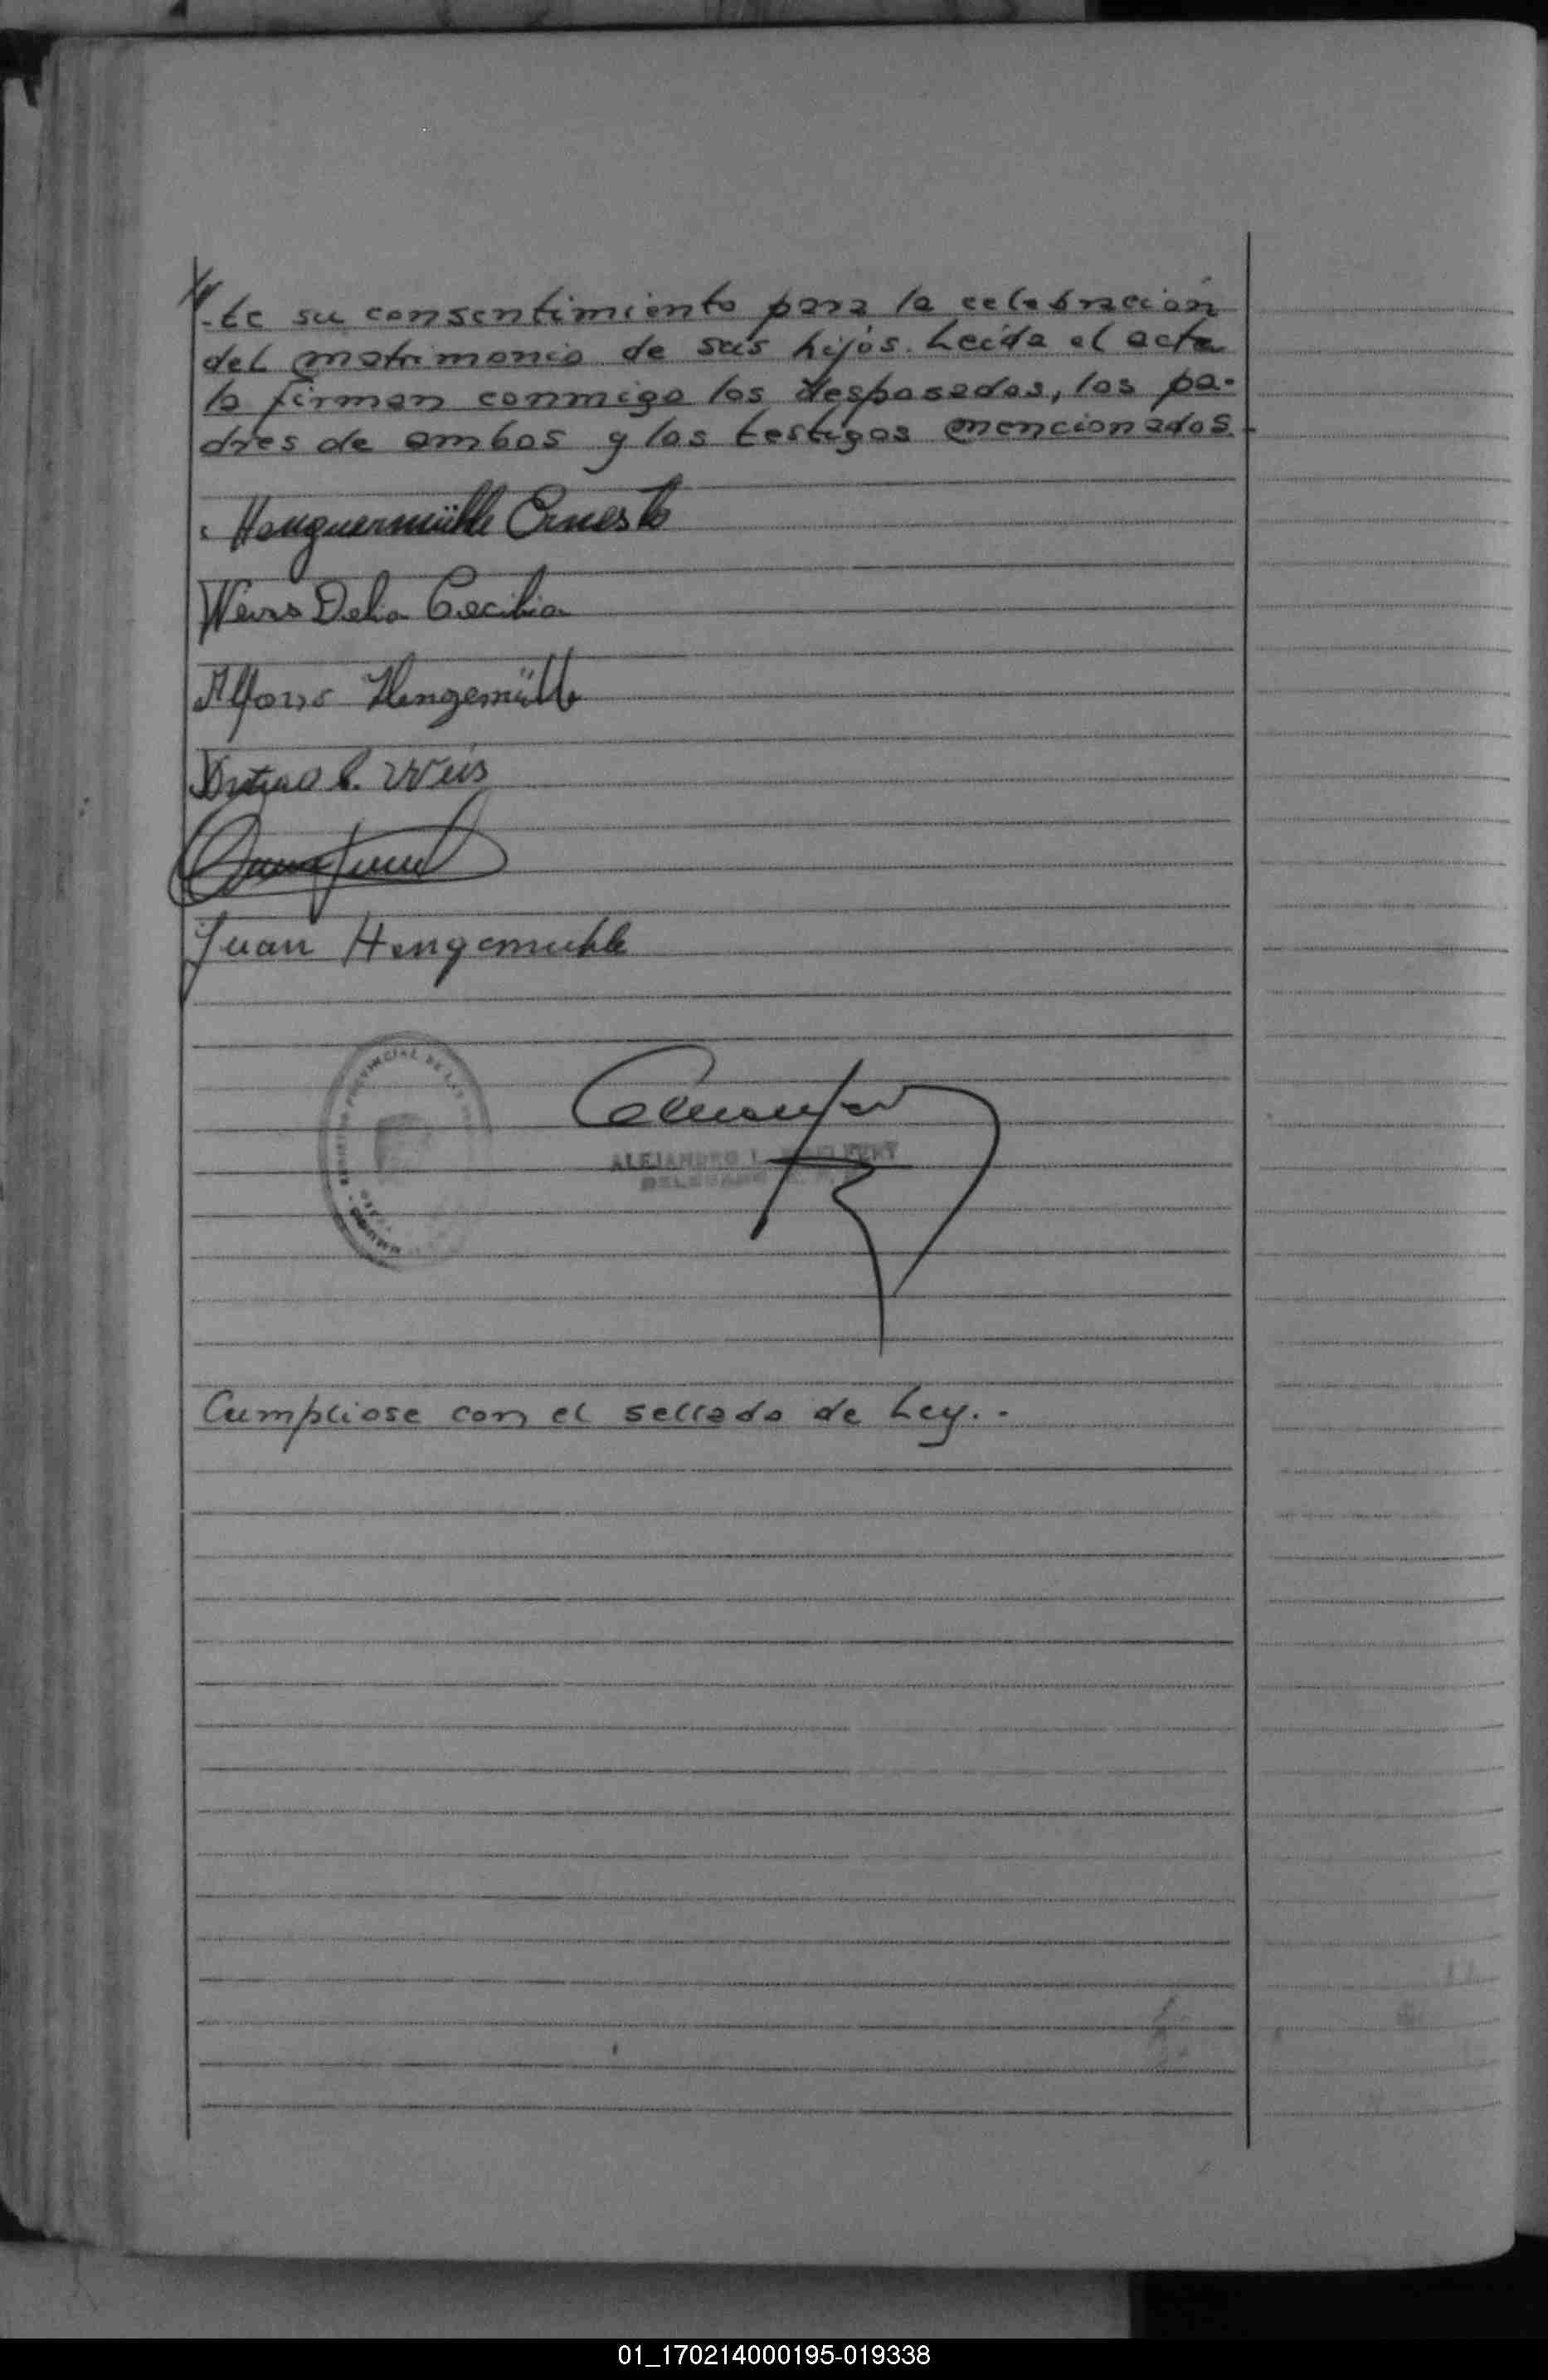 -te su consentimiento para la celebración
del matrimonio de sus hijos. Leída el acta
la firman conmigo los desposados, los pa-
dres de ambos y los testigos mencionados.-
Henguermühle Ernesto
Weiss Delia Cecilia
Alfonso Hengemühle
Arturo C. Weis
Juan Hengemuhle
PROVINCIAL DE LAS
ALEJANDRO
DELEGADO
Cumpliose con el sellado de Ley.-
01_170214000195-019338